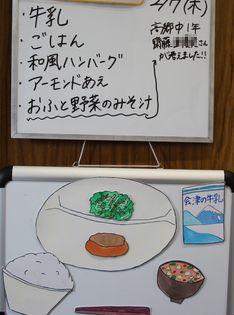 2/7(木)
・牛乳
・ごはん
・和風ハンバーグ
・アーモンドあえ
・おふと野菜のみそ汁
高郷中1年
齋藤 さん
が考えました!!
会津の牛乳